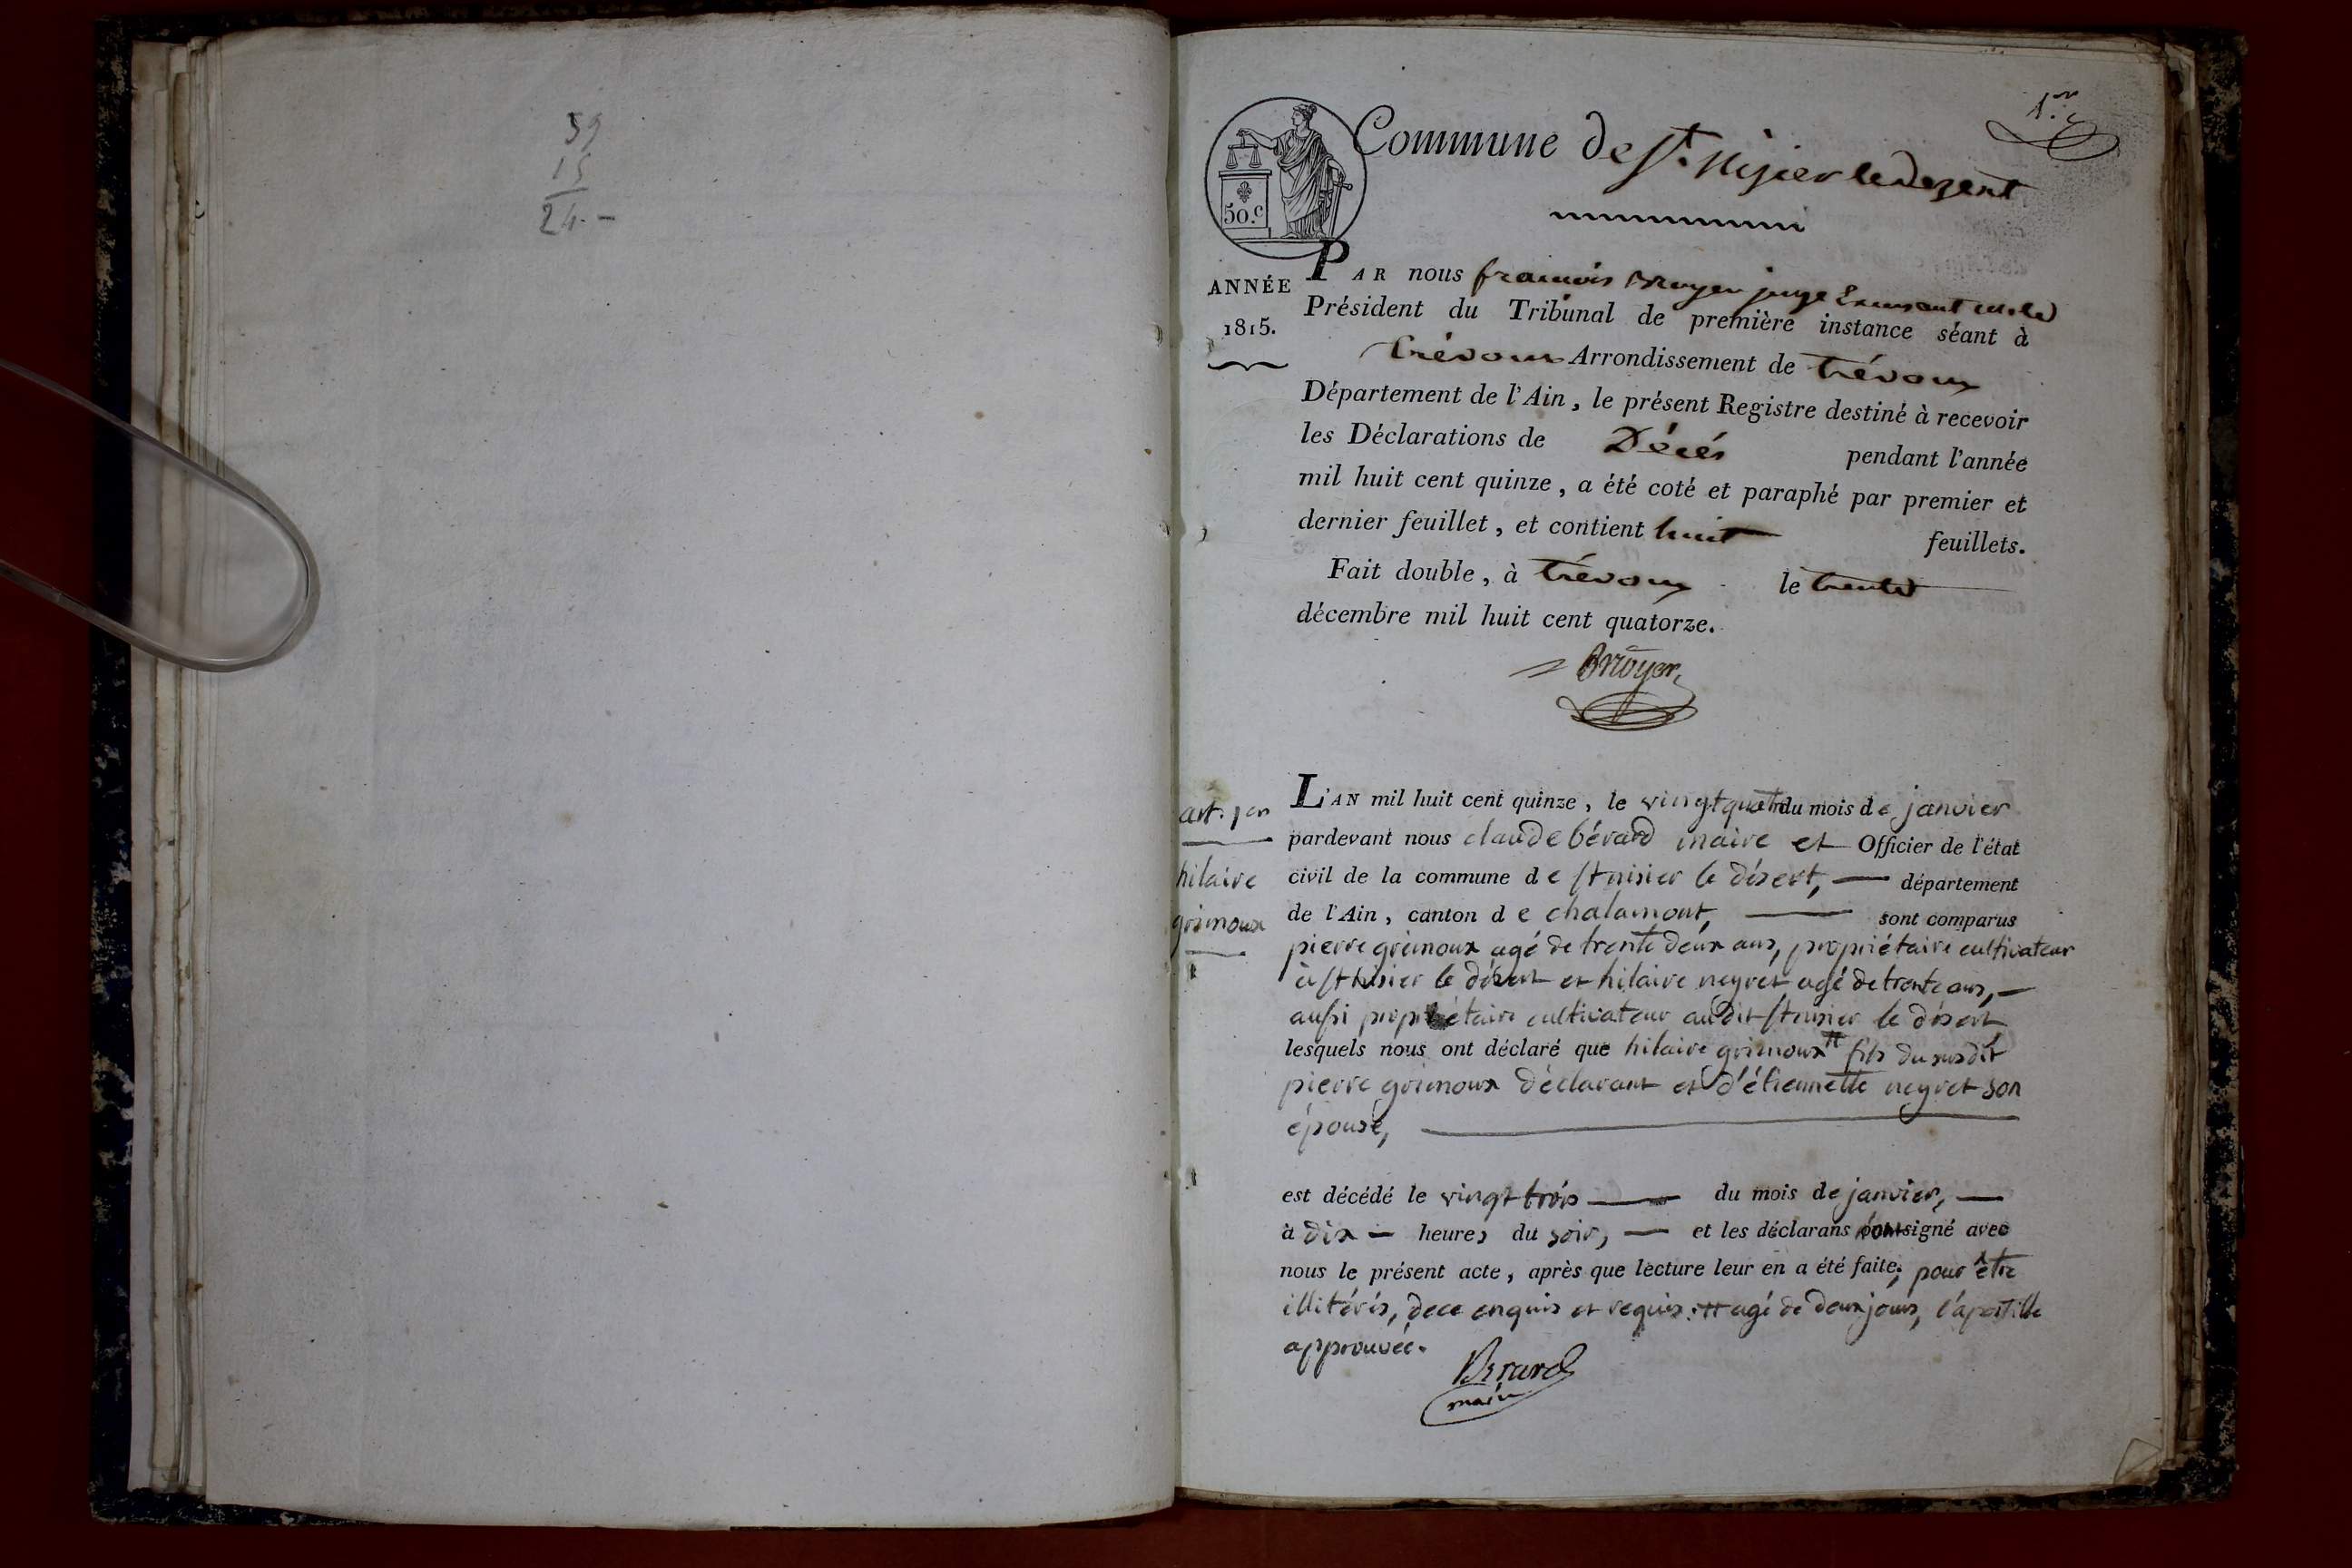 39
15
24. -
1.er
Commune de St. nizier le dezert
50.c
ANNÉE
1815.
PAR nous francois Broyer juge
Président du Tribunal de première instance séant à
trévoux Arrondissement de trévoux
Département de l'Ain, le présent Registre destiné à recevoir
les Déclarations de Décés pendant l'année
mil huit cent quinze, a été coté et paraphé par premier et
dernier feuillet, et contient huit feuillets.
Fait double, à trévoux le trente
décembre mil huit cent quatorze.
Broyer
art. 1er
hilaire
grimoux
L'AN mil huit cent quinze, le vingt quatre du mois de janvier
pardevant nous claude bérard maire et Officier de l'état
civil de la commune de st nisier le désert, département
de l'Ain, canton de chalamont, sont comparus
pierre grimoux agé de trente deux ans, propriétaire cultivateur
à st nisier le désert et hilaire neyret agé de trente ans,
aussi propriétaire cultivateur audit st nisier le désert
lesquels nous ont déclaré que hilaire grimoux # fils du susdit
pierre grimoux déclarant et d'étiennette neyret son
épouse,
est décédé le vingt trois du mois de janvier,
à dix heures du soir, et les déclarans n'ont signé avec
nous le présent acte, après que lecture leur en a été faite, pour être
illitérés, de ce enquis et requis. # agé de deux jours, l'apostille
approuvée.
Bérard
maire